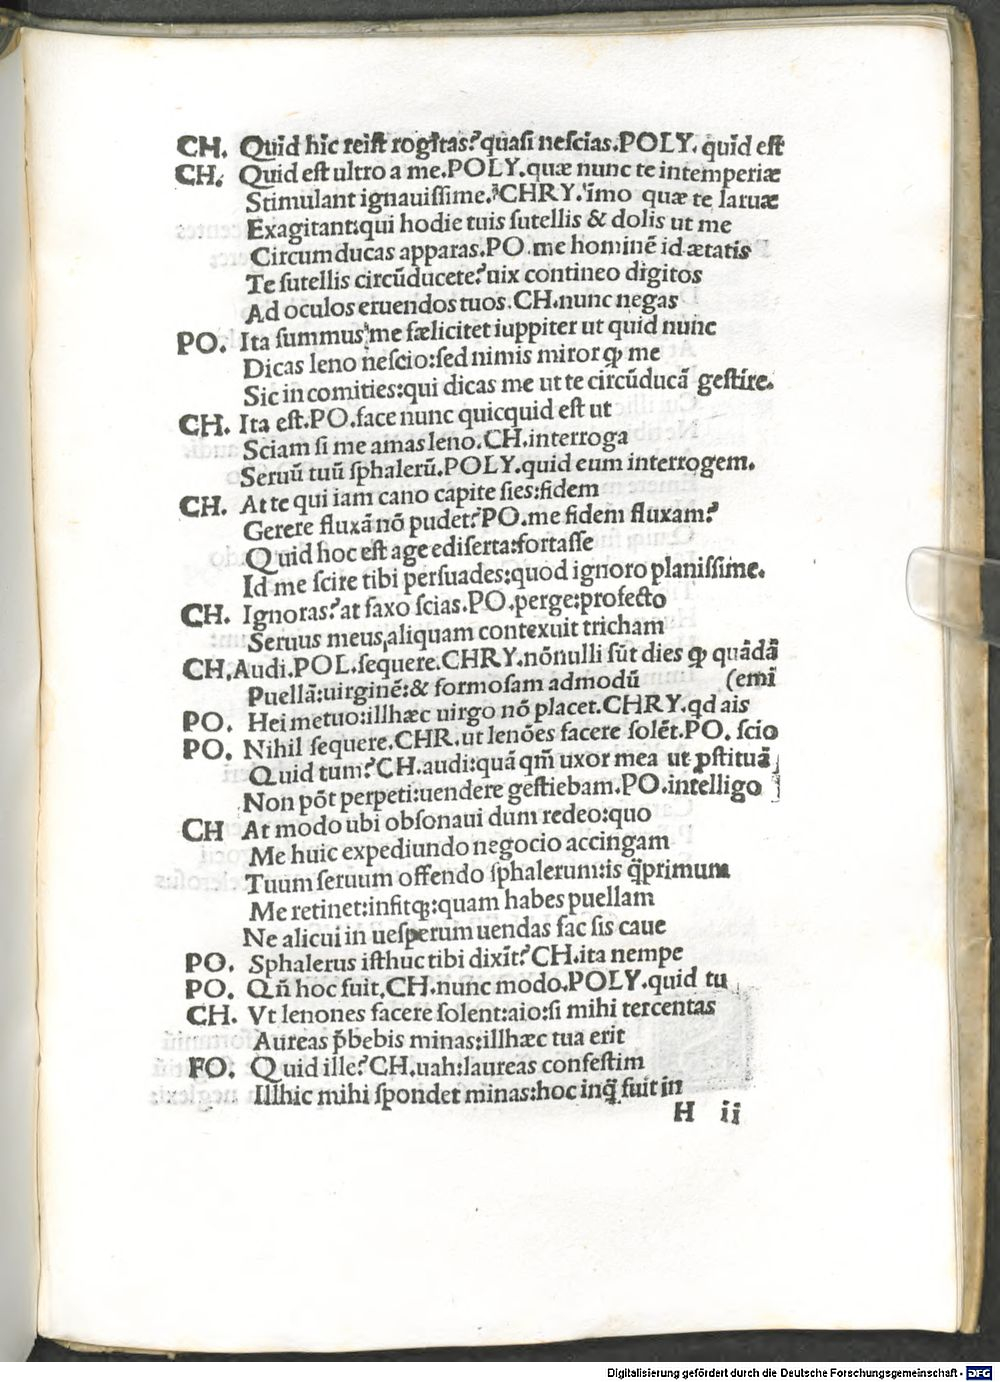 CH. Quid hic reist rogitas?quasi nescias.POLY. quid est
CH. Quid est ultro a me.POLY.quæ nunc te intemperiæ
Stimulant ignauissime.?CHRY.imo quæ te laruæ
Exagitant:qui hodie tuis sutellis & dolis ut me
Circum ducas apparas.PO.me hominē id ætatis
Te sutellis circūducete?uix contineo digitos
Ad oculos eruendos tuos.CH.nunc negas
PO. Ita summus me fælicitet iuppiter ut quid nunc
Dicas leno nescio:sed nimis miror ꝙ me
Sic in comities:qui dicas me ut te circūducā gestire.
CH. Ita est.PO.face nunc quicquid est ut
Sciam si me amas leno.CH.interroga
Seruū tuū sphalerū.POLY.quid eum interrogem.
CH. At te qui iam cano capite sies:fidem
Gerere fluxā nō pudet?PO.me fidem fluxam?
Quid hoc est age ediserta:fortasse
Id me scire tibi persuades:quod ignoro planissime.
CH. Ignoras?at faxo scias.PO.perge:profecto
Seruus meus aliquam contexuit tricham
CH.Audi.POL.sequere.CHRY.nōnulli sūt dies ꝙ quādā
Puellā:uirginē:& formosam admodū (emi
PO. Hei metuo:illhæc uirgo nō placet.CHRY.qd ais
PO. Nihil sequere.CHR.ut lenōes facere solēt.PO. scio
Quid tum?CH.audi:quā qm̄ uxor mea ut ꝓstituā
Non pōt perpeti:uendere gestiebam.PO.intelligo
CH At modo ubi obsonaui dum redeo:quo
Me huic expediundo negocio accingam
Tuum seruum offendo sphalerum:is q̄primum
Me retinet:infitqꝫ:quam habes puellam
Ne alicui in uesperum uendas fac sis caue
PO. Sphalerus isthuc tibi dixīt?CH.ita nempe
PO. Qn̄ hoc fuit.CH.nunc modo.POLY.quid tu
CH. Vt lenones facere solent:aio:si mihi tercentas
Aureas p̄bebis minas:illhæc tua erit
FO. Quid ille?CH.uah:laureas confestim
Illhic mihi spondet minas:hoc inq̄ fuit in
H ii
Digitalisierung gefördert durch die Deutsche Forschungsgemeinschaft - DFG